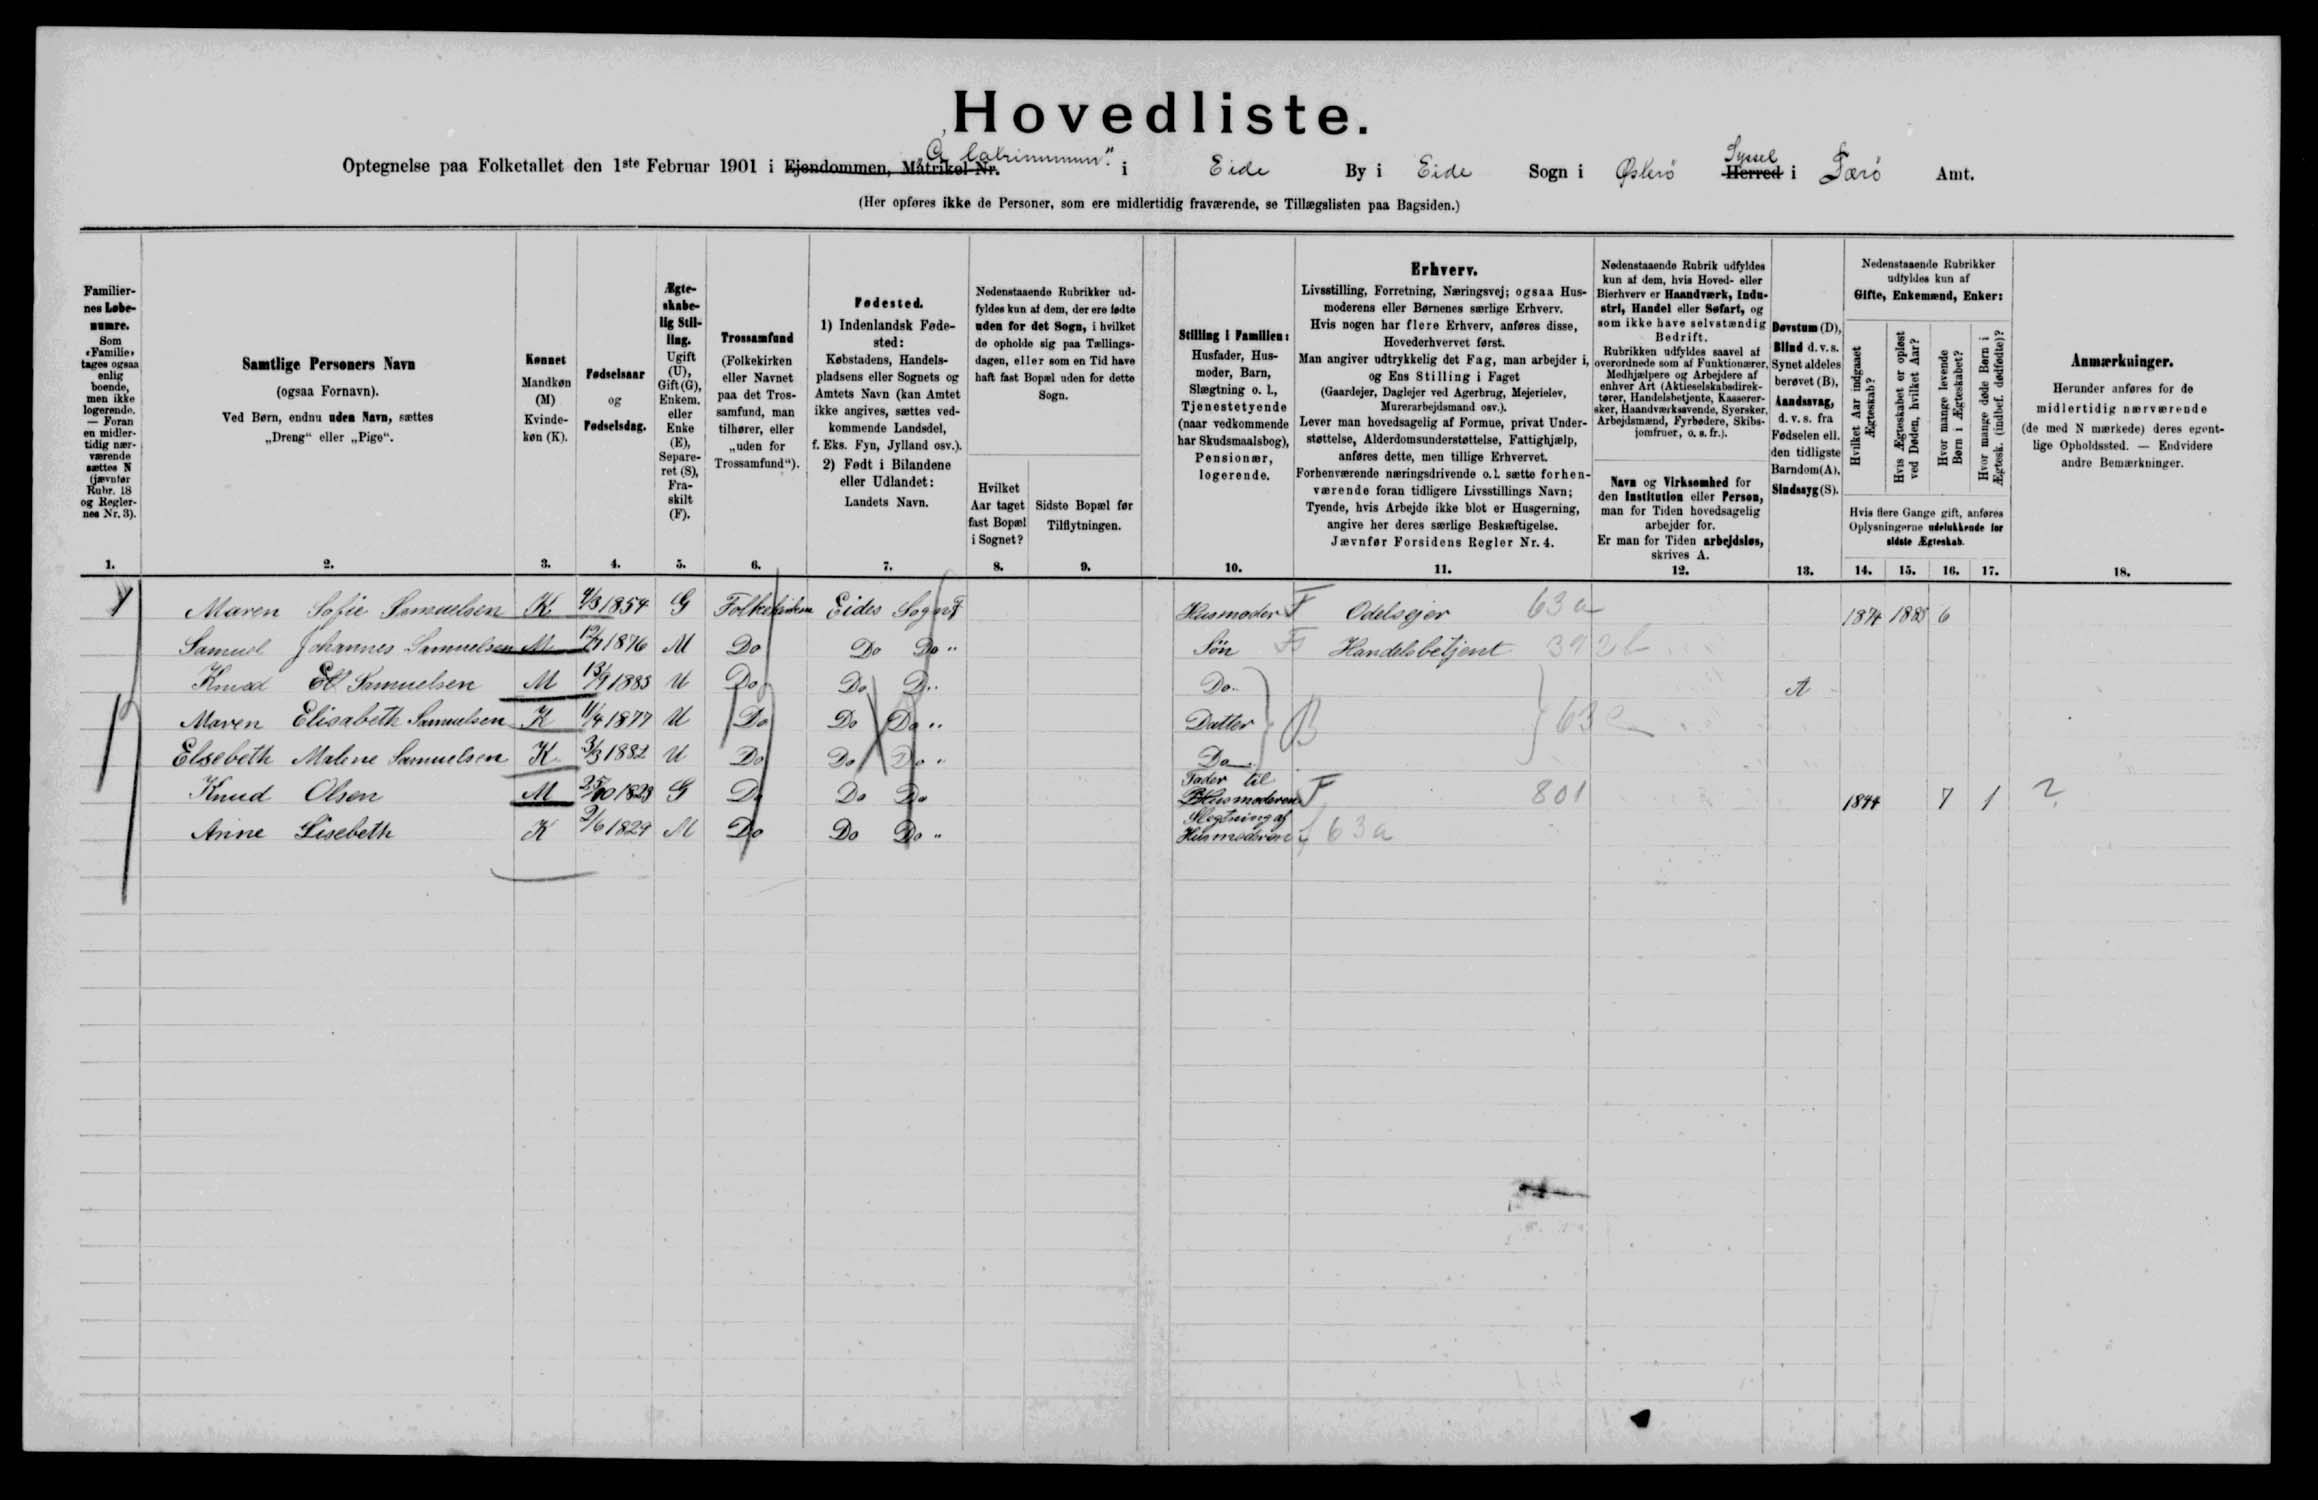 Hovedliste.
Optegnelse paa Folketallet den 1ste Februar 1901 i Ejendommen, Matrikel-Nr. i Eide By i Eide Sogn i Østerø Herred Syssel i Færø Amt.
(Her opføres ikke de Personer, som ere midlertidig fraværende, se Tillægslisten paa Bagsiden.)
Familier-
nes Løbe-
numre.
Som
«Familie»
tages ogsaa
enlig
boende,
men ikke
logerende.
— Foran
en midler-
tidig nær-
værende
sættes N
(jævnfør
Rubr. 18
og Regler-
nes Nr. 3).
1.
Samtlige Personers Navn
(ogsaa Fornavn).
Ved Børn, endnu uden Navn, sættes
„Dreng“ eller „Pige“.
2.
Kønnet
Mandkøn
(M)
Kvinde-
køn (K).
3.
Fødselsaar
og
Fødselsdag.
4.
Ægte-
skabe-
lig Stil-
ling.
Ugift
(U),
Gift (G),
Enkem.
eller
Enke
(E),
Separe-
ret (S),
Fra-
skilt
(F).
5.
Trossamfund
(Folkekirken
eller Navnet
paa det Tros-
samfund, man
tilhører, eller
„uden for
Trossamfund“).
6.
Fødested.
1) Indenlandsk Føde-
sted:
Købstadens, Handels-
pladsens eller Sognets og
Amtets Navn (kan Amtet
ikke angives, sættes ved-
kommende Landsdel,
f. Eks. Fyn, Jylland osv.).
2) Født i Bilandene
eller Udlandet:
Landets Navn.
7.
Nedenstaaende Rubrikker ud-
fyldes kun af dem, der ere fødte
uden for det Sogn, i hvilket
de opholde sig paa Tællings-
dagen, eller som en Tid have
haft fast Bopæl uden for dette
Sogn.
Hvilket
Aar taget
fast Bopæl
i Sognet?
8.
Sidste Bopæl før
Tilflytningen.
9.
Stilling i Familien:
Husfader, Hus-
moder, Barn,
Slægtning o. l.,
Tjenestetyende
(naar vedkommende
har Skudsmaalsbog),
Pensionær,
logerende.
10.
Erhverv.
Livsstilling, Forretning, Næringsvej; ogsaa Hus-
moderens eller Børnenes særlige Erhverv.
Hvis nogen har flere Erhverv, anføres disse,
Hovederhvervet først.
Man angiver udtrykkelig det Fag, man arbejder i,
og Ens Stilling i Faget
(Gaardejer, Daglejer ved Agerbrug, Mejerielev,
Murerarbejdsmand osv.).
Lever man hovedsagelig af Formue, privat Under-
støttelse, Alderdomsunderstøttelse, Fattighjælp,
anføres dette, men tillige Erhvervet.
Forhenværende næringsdrivende o.l. sætte forhen-
værende foran tidligere Livsstillings Navn;
Tyende, hvis Arbejde ikke blot er Husgerning,
angive her deres særlige Beskæftigelse.
Jævnfør Forsidens Regler Nr. 4.
11.
Nedenstaaende Rubrik udfyldes
kun af dem, hvis Hoved- eller
Bierhverv er Haandværk, Indu-
stri, Handel eller Søfart, og
som ikke have selvstændig
Bedrift.
Rubrikken udfyldes saavel af
overordnede som af Funktionærer,
Medhjælpere og Arbejdere af
enhver Art (Aktieselskabsdirek-
tører, Handelsbetjente, Kasserer-
sker, Haandværkssvende, Syersker,
Arbejdsmænd, Fyrbødere, Skibs-
jomfruer, o. s. fr.).
Navn og Virksomhed for
den Institution eller Person,
man for Tiden hovedsagelig
arbejder for.
Er man for Tiden arbejdsløs,
skrives A.
12.
Døvstum (D),
Blind d. v. s.
Synet aldeles
berøvet (B),
Aandssvag,
d. v. s. fra
Fødselen ell.
den tidligste
Barndom (A),
Sindssyg (S).
13.
Nedenstaaende Rubrikker
udfyldes kun af
Gifte, Enkemænd, Enker:
Hvilket Aar indgaaet
Ægteskab?
Hvis Ægteskabet er opløst
ved Døden, hvilket Aar?
Hvor mange levende
Børn i Ægteskabet?
Hvor mange døde Børn i
Ægtesk. (indbef. dødfødte)?
Hvis flere Gange gift, anføres
Oplysningerne udelukkende for
sidste Ægteskab.
14. 15. 16. 17.
Anmærkninger.
Herunder anføres for de
midlertidig nærværende
(de med N mærkede) deres egent-
lige Opholdssted. — Endvidere
andre Bemærkninger.
18.
Maren Sofie Samuelsen K 4/3 1854 G Folkekirken Eides Sogn Husmoder F Odelsejer 63 a 1874 1888 6
Samuel Johannes Samuelsen M 1876 M Do Do Do " Søn Handelsbetjent 392 b
Knud Samuelsen M 13/9 1885 U Do Do D " Do A
Maren Elisabeth Samuelsen K 11/4 1877 U Do Do Do " Datter B 63
Elsebeth Malene Samuelsen K 3/3 1882 U Do Do Do " Do
Knud Olsen M 25/10 1823 G Do Do Do Fader til Husmoderen F 801 1844 7 1 ?
Anne Lisebeth K 2/6 1829 M Do Do Do " Slegtning af Husmoderen 63 a